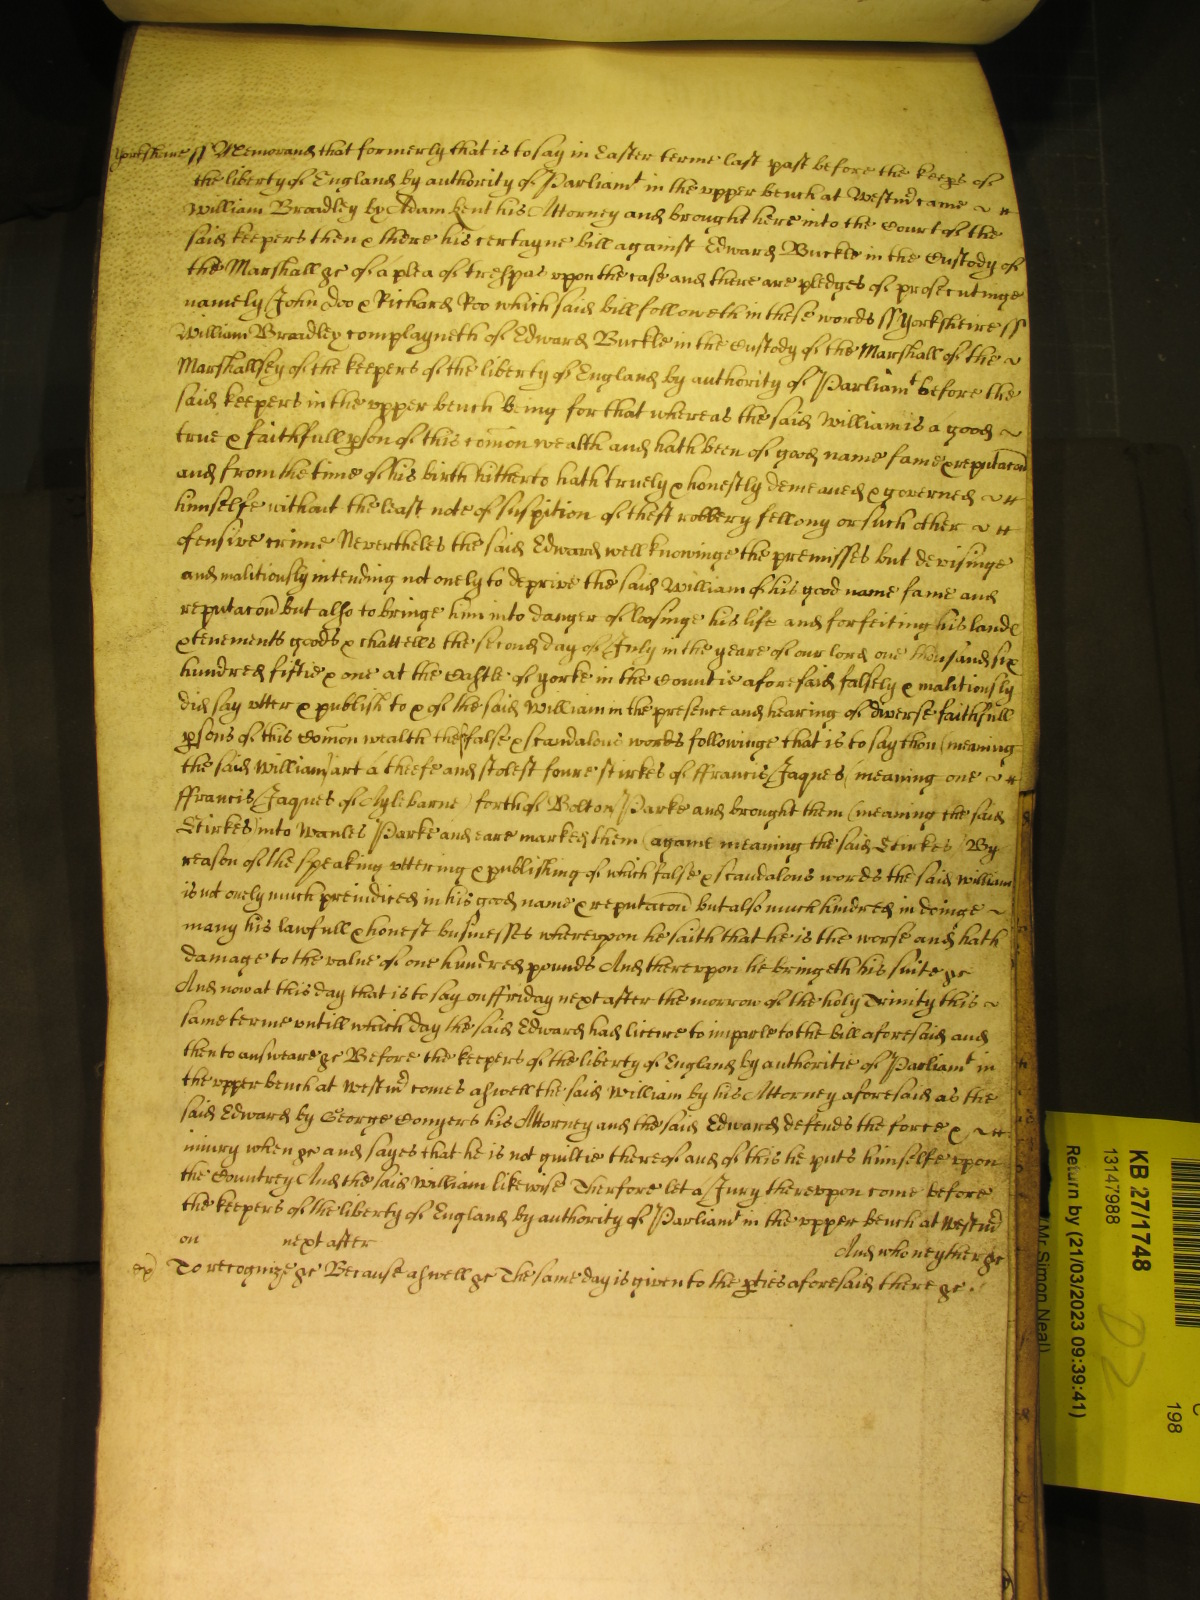 Yorkshire ss Memorand that formerly that is to say in Easter terme last past before the keeps of
the liberty of England by authority of Parliamt in the upper bench at Westmr came
William Bradley by Adam Kent his Attorney and brought here into the Court of the
said keepers then & there his certayne bill against Edward Buckle in the Custody of
the Marshall &c of a plea of trespas upon the case and there are pledges of prosecutinge
namely John Doo & Richard Roo which said bill followeth in these words ss Yorksheire ss
William Bradley complayneth of Edward Buckle in the Custody of the Marshall of the
Marshallsey of the keepers of the liberty of England by authority of Parliamt before the
said keepers in the upper bench being for that whereas the said William is a good
true & faithfull pson of this comon wealth and hath been of good name fame & reputacon
and from the time of his birth hitherto hath truely & honestly demeaned & governed
himselfe without the least note of suspition of theft robbery fellony or such other
ofensive crime Nevertheles the said Edward well knowinge the premisses but devisinge
and malitiously intending not onely to deprive the said William of his good name fame and
reputacon but also to bringe him into danger of loosinge his life and forfeiting his lands
& tenements goods & chattells the second day of July in the yeare of our lord one thousand six
hundred fiftie & one at the Castle of Yorke in the Countie aforesaid falsely & malitiously
did say utter & publish to & of the said William in the presence and hearing of diverse faithfull
psons of this Comon wealth thes false & scandalous words followinge that is to say thou (meaning
the said William) art a theefe and stolest foure stirkes of ffrancis Jaques (meaning one
ffrancis Jaques of Aylebarne) forth of Bolton Parke and brought them (meaning the said
Stirkes) into Wanles Parke and eare marked them (againe meaning the said Stirkes) By
reason of the speaking uttering & publishing of which false & scandalous words the said William
is not onely much preiudiced in his good name & reputacon but also much hindred in doinge
many his lawfull & honest businesses whereupon he saith that he is the worse and hath
damage to the value of one hundred pounds And thereupon he bringeth his suite &c
And now at this day that is to say on ffriday next after the morrow of the holy Trinity this
same terme untill which day the said Edward had licence to imparle to the bill aforesaid and
then to answeare &c Before the keepers of the liberty of England by authoritie of Parliamt in
the upper bench at Westmr comes aswell the said William by his Attorney aforesaid as the
said Edward by George Conyers his Attorney and the said Edward defends the force &
iniury when &c and sayes that he is not guiltie thereof and of this he puts himselfe upon
the Countrey And the said William likewise Therfore let a Jury thereupon come before
the keepers of the liberty of England by authority of Parliamt in the upper bench at Westmr
on next after And who neyther &c
To recognize &c Because aswell &c The same day is given to the pties aforesaid there &c.
KB 27/1748
13147988
Return by (21/03/2023 09:39:41)
(Mr Simon Neal)
D2
198